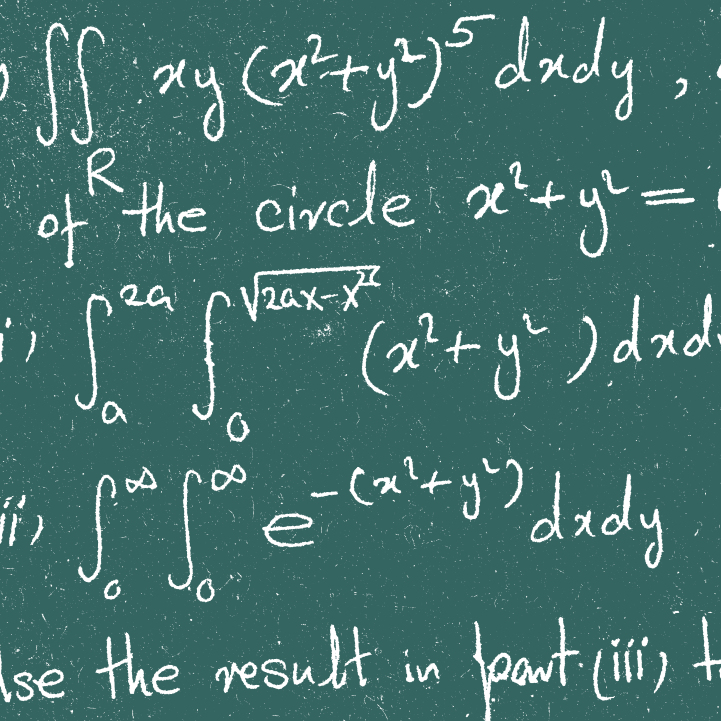 ) ∬_R xy (x²+y²)⁵ dxdy ,
of the circle x²+y² =
i) ∫_a^{2a} ∫_0^{√(2ax-x²)} (x²+y²) dxdy
ii) ∫_0^∞ ∫_0^∞ e^{-(x²+y²)} dxdy
se the result in part (iii)